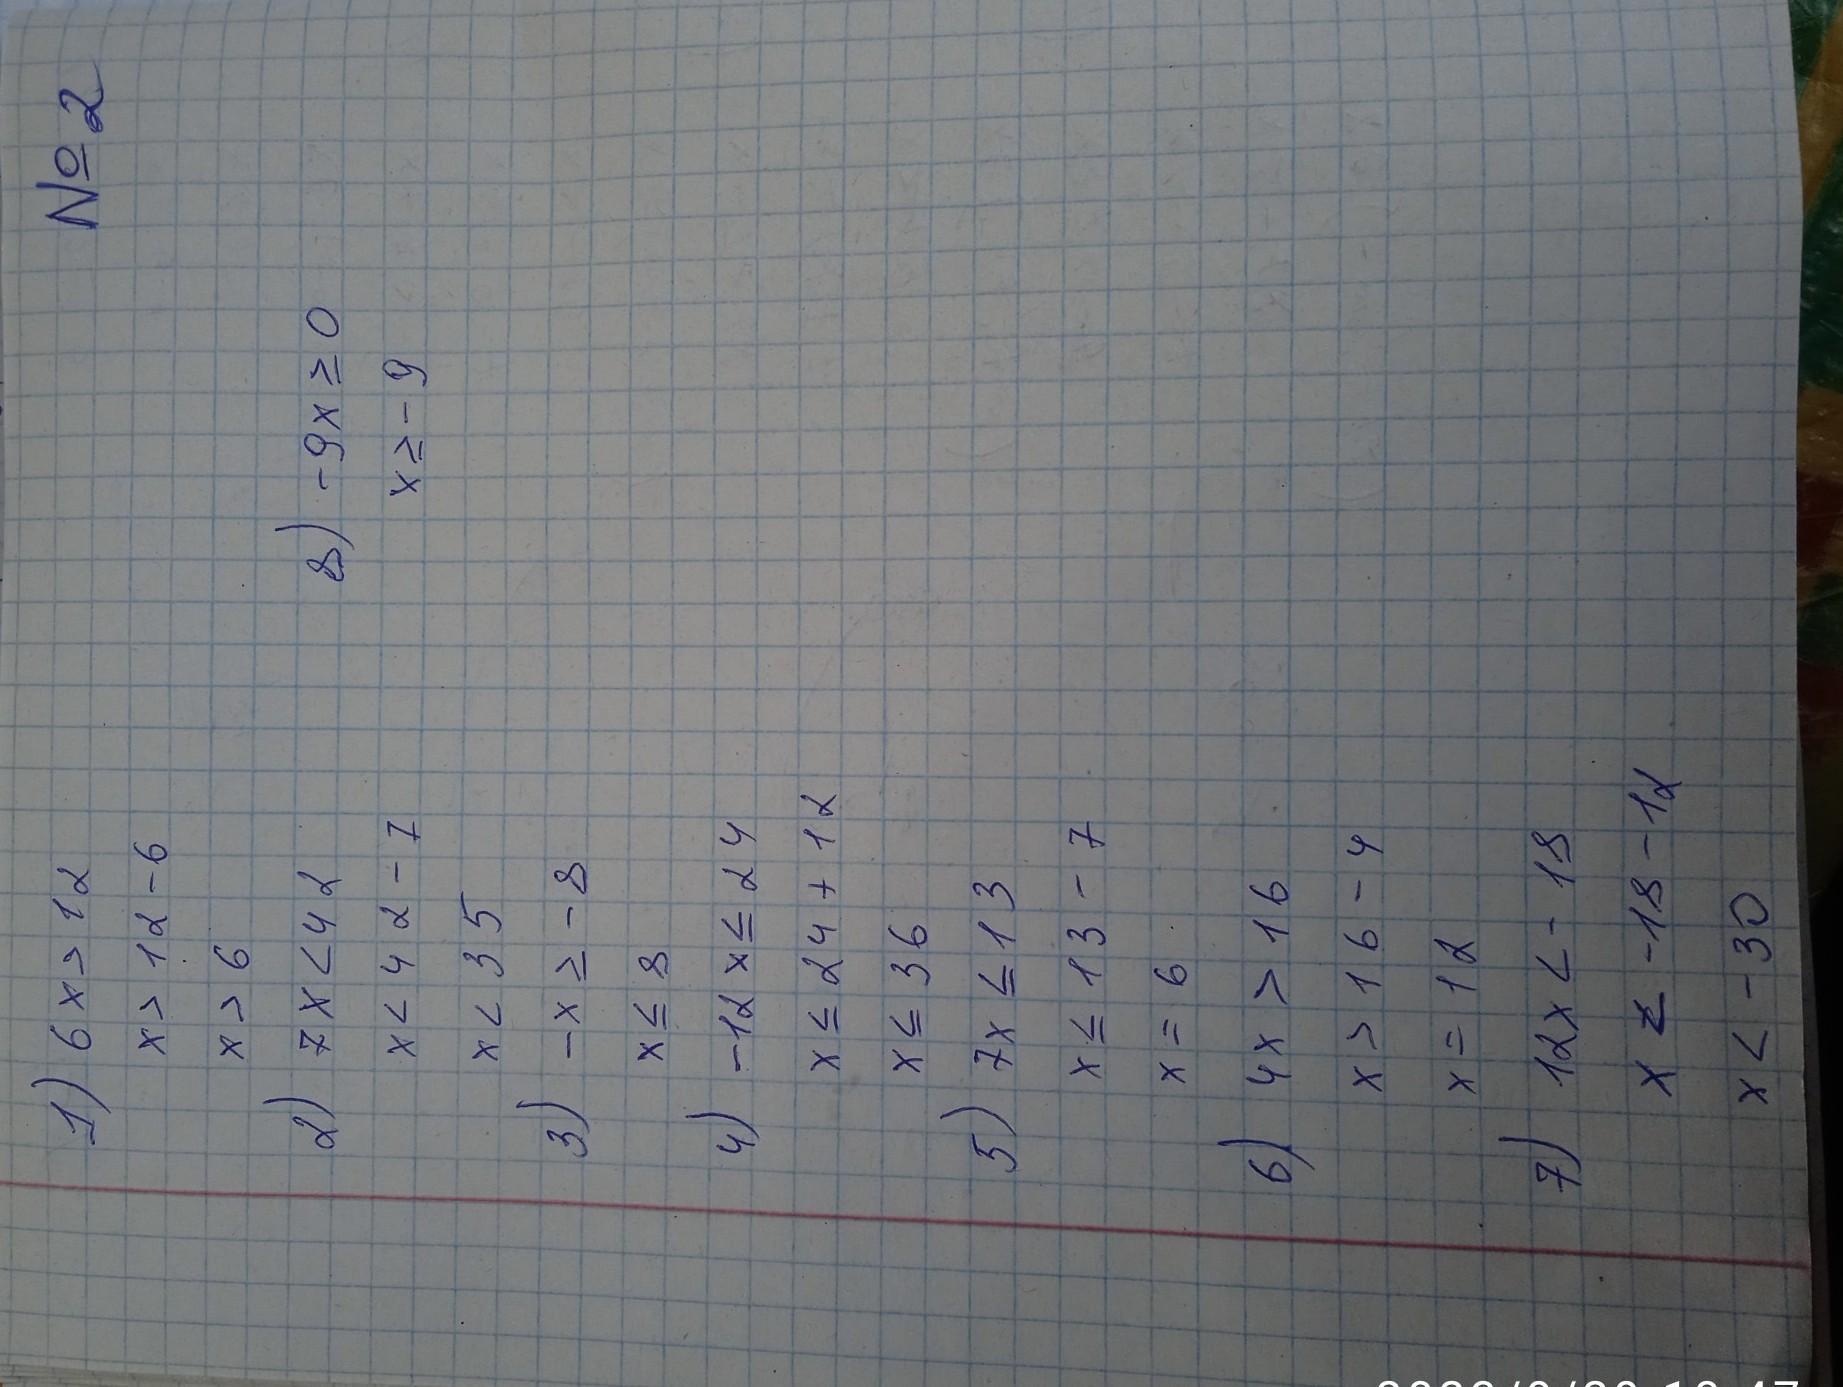 №2
1) 6x > 12
x > 12 - 6
x > 6
2) 7x < 42
x < 42 - 7
x < 35
3) -x ≥ -8
x ≤ 8
4) -12x ≤ 24
x ≤ 24 + 12
x ≤ 36
5) 7x ≤ 13
x ≤ 13 - 7
x = 6
6) 4x > 16
x > 16 - 4
x = 12
7) 12x < - 18
x < -18 - 12
x < -30
8) -9x ≥ 0
x ≥ -9